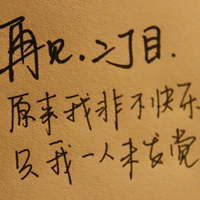 再见.二丁目.
原来我非不快乐
只我一人未发觉